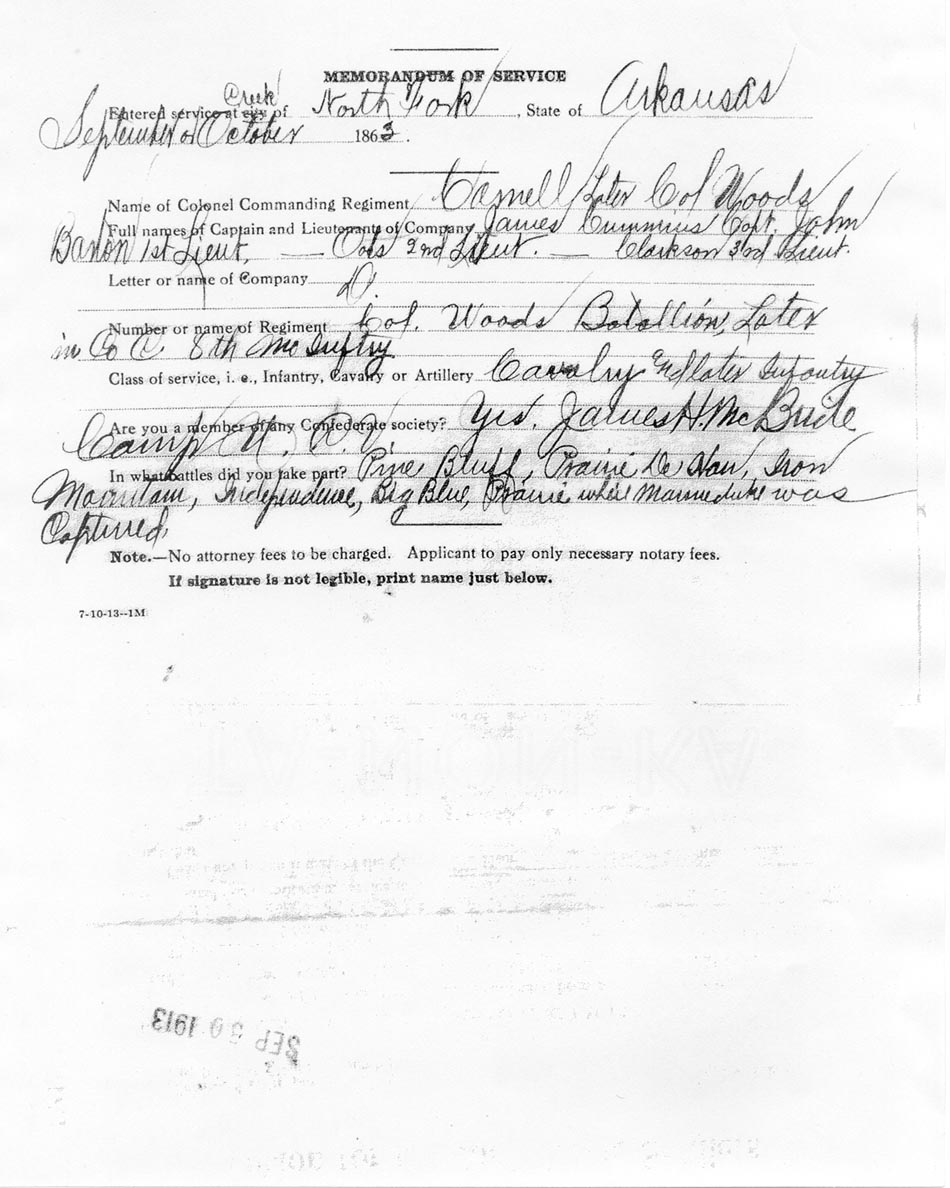 MEMORANDUM OF SERVICE
Creek
Entered service at city of North Fork, State of Arkansas
September or October 1863.
Name of Colonel Commanding Regiment Later Col Woods
Full names of Captain and Lieutenants of Company James Cummins Capt. John
1st Lieut, — 2nd Lieut. — Clarkson 3rd Lieut.
Letter or name of Company D.
Number or name of Regiment Col. Woods Batallion, Later
in Co C. 8th Mo Inftry
Class of service, i. e., Infantry, Cavalry or Artillery Cavalry and later Infantry
Are you a member of any Confederate society? Yes. James H. McBride
Camp U. C. V.
In what battles did you take part? Pine Bluff, Prairie De Han, Iron
Mountain, Independence, Big Blue, Prairie where Marmeduke was
Captured.
Note.—No attorney fees to be charged. Applicant to pay only necessary notary fees.
If signature is not legible, print name just below.
7-10-13--1M
SEP 30 1913